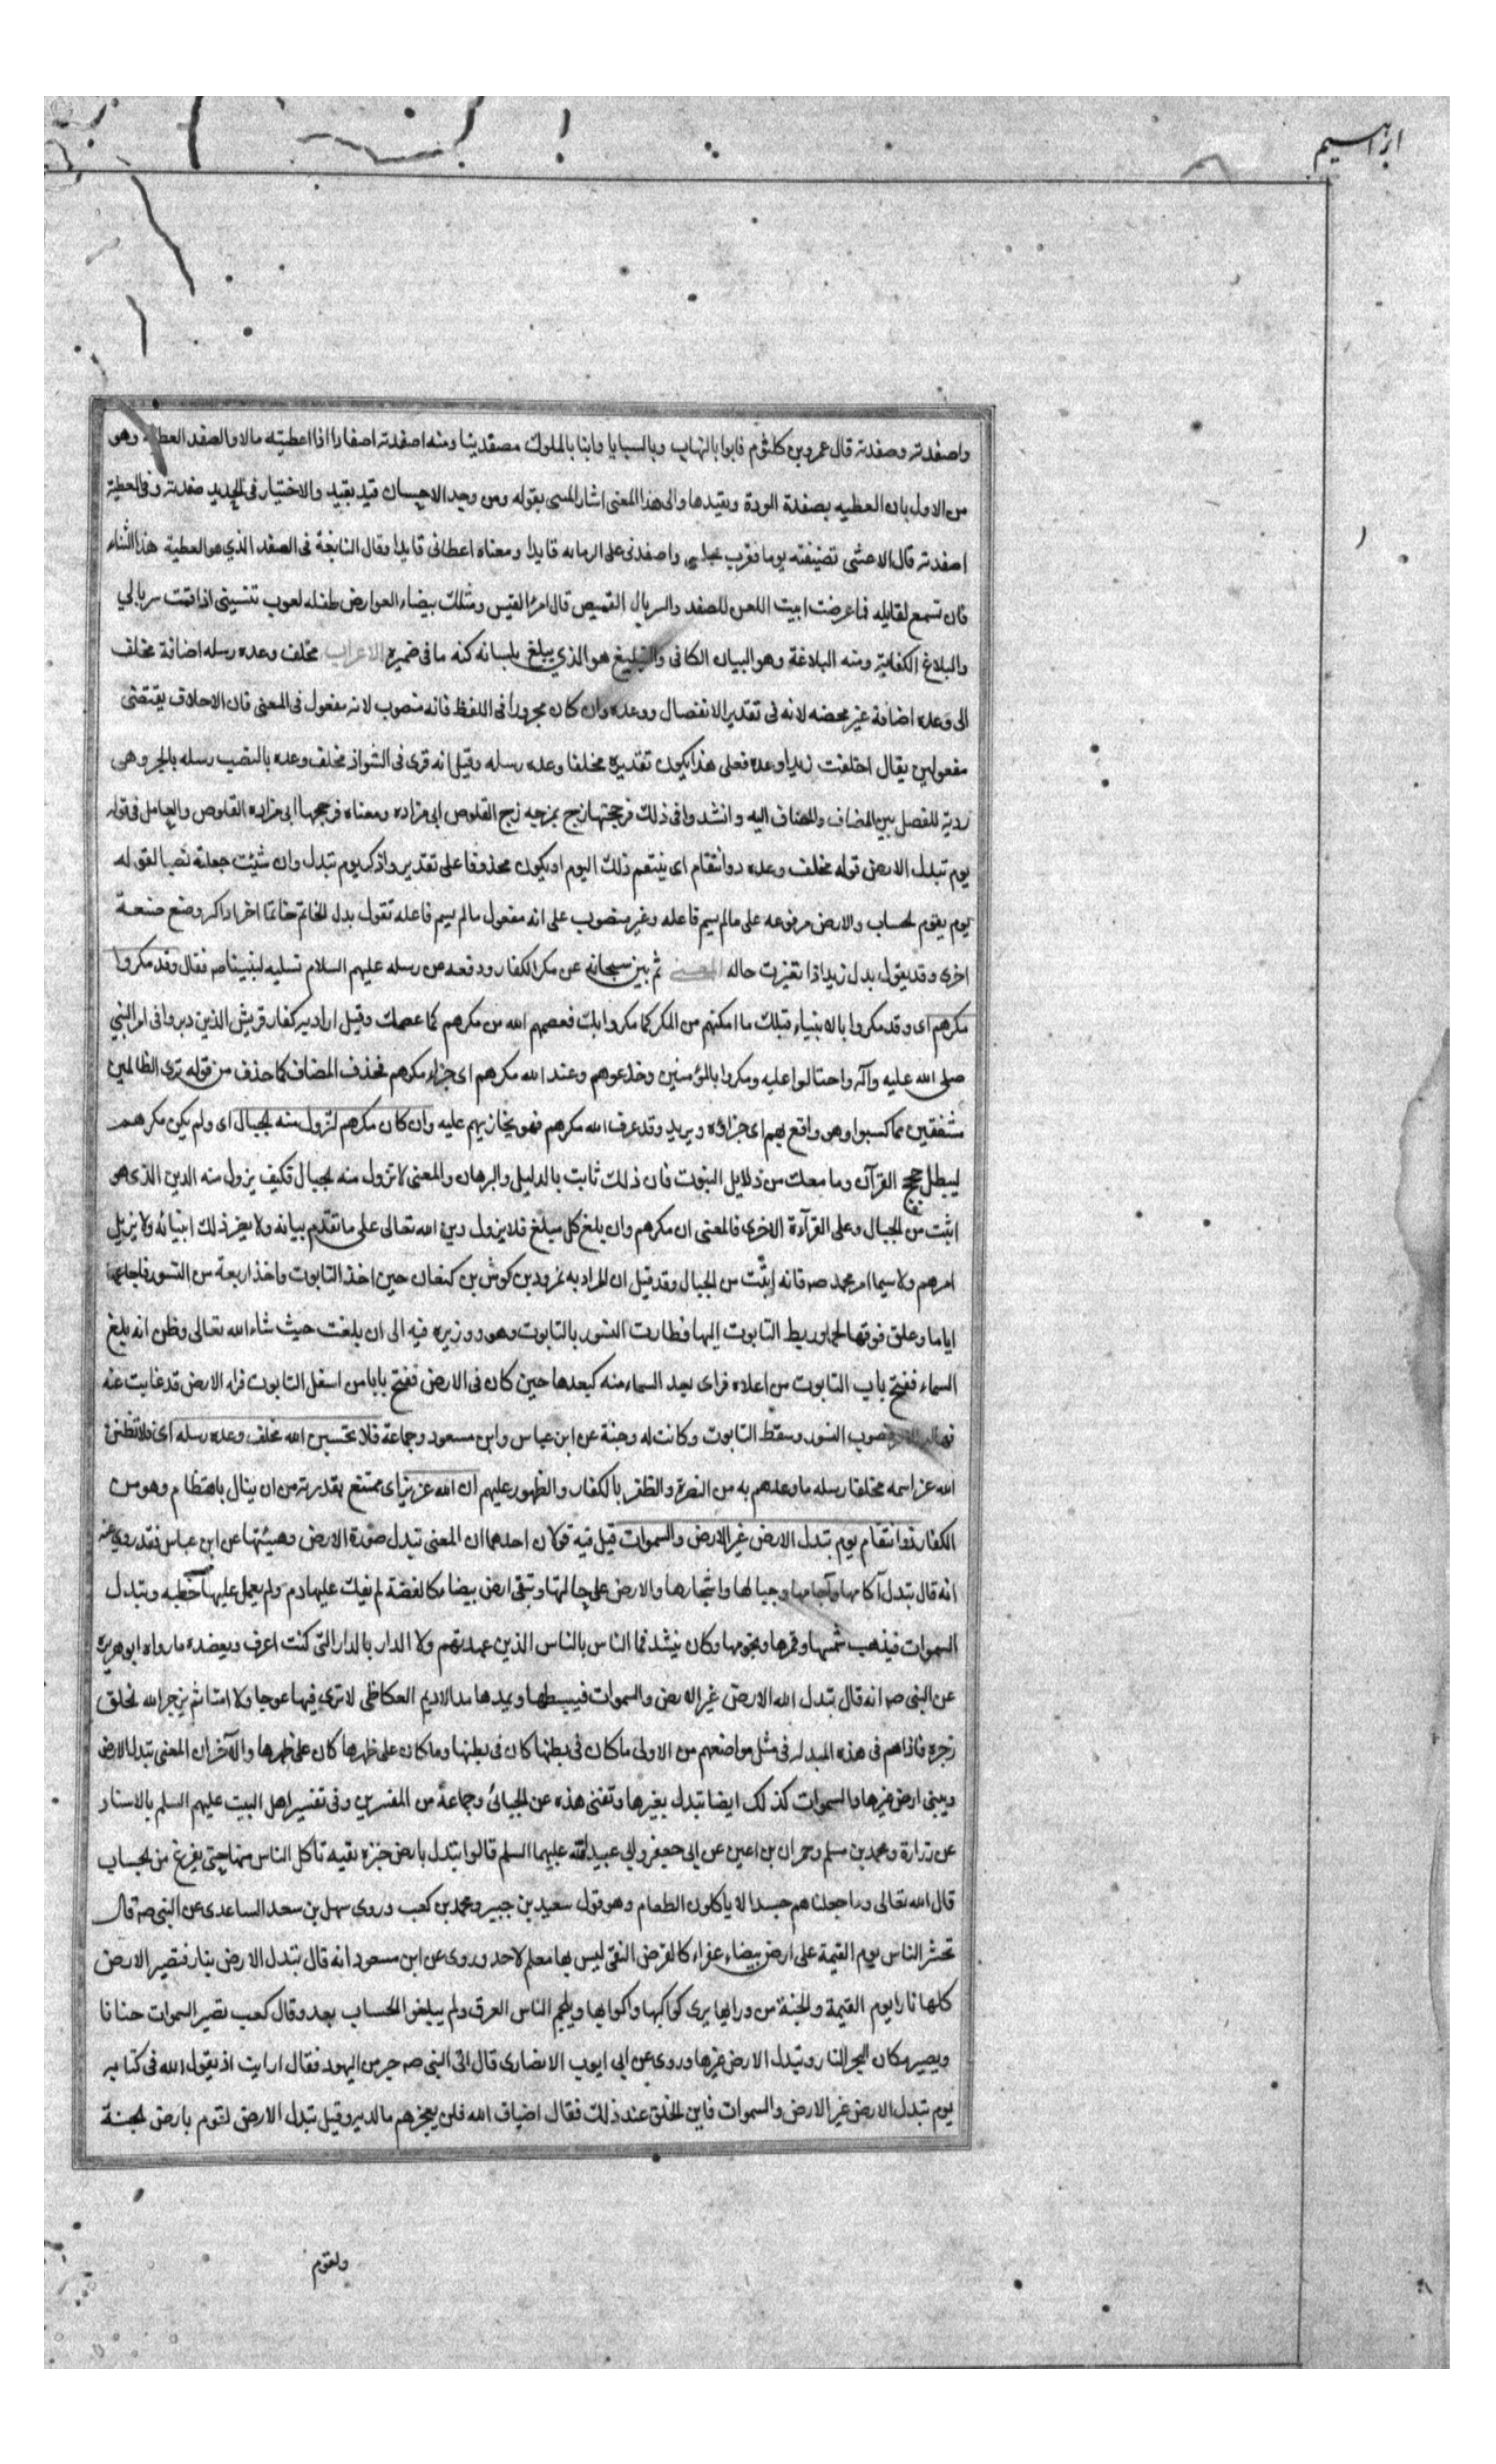 ابراهيم
واصفدته وصفدته قال عمرو بن كلثوم فابوا بالنهاب وبالسبايا وابنا بالملوك مصفدينا ومنه اصفدته اصفادا اذا اعطيته مالا والصفد العطية وهو
من الاول بان العطيه بصفدة المودة ويقيدها والى هذا المعنى اشار المسى بقوله ومن وجد الاحسان قيد بقيد والاختيار فى الحديد صفدته وفى العطية
اصفدته قال الاعشى تضيفته يوما فقرب مجلسى واصفدنى على الزمانه قايدا ومعناه اعطانى قايدا وقال النابغة فى الصفد الذي هو العطية هذا الثناء
فان تسمع لقايله فما عرضت ابيت اللعن للصفد والسربال القميص قال امرؤ القيس ومثلك بيضاء العوارض طفله لعوب تنسينى اذا قمت سربالي
والبلاغ الكفاية ومنه البلاغة وهو البيان الكافى والبليغ هو الذي يبلغ بلسانه كنه ما فى ضميره الاعراب مخلف وعده رسله اضافة مخلف
الى وعده اضافة غير محضه لانه فى تقدير الانفصال ووعده وان كان مجرورا فى اللفظ فانه منصوب لانه مفعول فى المعنى فان الاخلاف يقتضى
مفعولين يقال اخلفت زيدا وعده فعلى هذا يكون تقديره مخلفا وعده رسله وقيل انه قرى فى الشواذ مخلف وعده بالنصب رسله بالجر وهى
ردية للفصل بين المضاف والمضاف اليه وانشدوا فى ذلك فزججتها بمزجه زج القلوص ابى مزاده ومعناه فزججها ابى مزاده القلوص والعامل فى قوله
يوم تبدل الارض قوله مخلف وعده ذو انتقام اى ينتقم ذلك اليوم او يكون محذوفا على تقدير واذكر يوم تبدل وان شئت جعلته نصبا لقوله
يوم يقوم الحساب والارض مرفوعه على ما لم يسم فاعله وغير منصوب على انه مفعول ما لم يسم فاعله تقول بدل الخاتم خاتما اخر اذا كر وضع صنعة
اخرى وقد يقول بدل زيد اذا تغيرت حاله المعنى ثم بين سبحانه عن مكر الكفار ودفعه عن رسله عليهم السلام تسليه لنبينا صم فقال وقد مكروا
مكرهم اى وقد مكروا بالانبياء قبلك ما امكنهم من المكر كما مكروا بك فعصمهم الله من مكرهم كما عصمك وقيل اراد به كفار قريش الذين دبروا فى امر النبي
صلى الله عليه وآله واحتالوا عليه ومكروا بالمؤمنين وخدعوهم وعند الله مكرهم اى جزاء مكرهم فحذف المضاف كما حذف من قوله ترى الظالمين
مشفقين مما كسبوا وهو واقع بهم اى جزاؤه ويريد وقد عرف الله مكرهم فهو يجازيهم عليه وان كان مكرهم لتزول منه الجبال اى ولم يكن مكرهم
ليبطل حجج القرآن وما معك من دلايل النبوت فان ذلك ثابت بالدليل والبرهان والمعنى لا تزول منه الجبال فكيف يزول منه الدين الذى هو
اثبت من الجبال وعلى القرآءة الاخرى فالمعنى ان مكرهم وان بلغ كل مبلغ فلا يزول دين الله تعالى على ما تقدم بيانه ولا يغير ذلك انبيائه ولا يزيل
امرهم ولا سيما امر محمد صم فانه اثبت من الجبال وقد قيل ان المراد به نمرود بن كوش بن كنعان حين اخذ التابوت واخذ اربعة من النسور فاجاعها
اياما وعلق فوقها لحما وربط التابوت اليها فطارت النسور بالتابوت وهو ووزيره فيه الى ان بلغت حيث شاء الله تعالى وظن انه بلغ
السماء ففتح باب التابوت من اعلاه فراى بعد السماء منه كبعدها حين كان فى الارض ففتح بابا من اسفل التابوت فراه الارض قد غابت عنه
فصوب النسور وسقط التابوت وكانت له وجبة عن ابن عباس وابن مسعود وجماعة فلا تحسبن الله مخلف وعده رسله اى فلا تظنن
الله عز اسمه مخلفا رسله ما وعدهم به من النصرة والظفر بالكفار والظهور عليهم ان الله عزيز اى ممتنع بقدرته من ان ينال باهتظام وهو من
الكفار ذو انتقام يوم تبدل الارض غير الارض والسموات قيل فيه قولان احدهما ان المعنى تبدل صورة الارض وهيئتها عن ابن عباس فقد روي عنه
انه قال تبدل آكامها وآجامها وجبالها واشجارها والارض على حالتها وتبقى ارض بيضا كالفضة لم يفك عليها دم ولم يعمل عليها خطيه وتبدل
السموات فيذهب شمسها وقمرها ونجومها وكان ينشد فما الناس بالناس الذين عهدتهم ولا الدار بالدار التى كنت اعرف ويعضده ما رواه ابو هريره
عن النبى صم انه قال تبدل الله الارض غير الارض والسموات فيبسطها ويمدها مد الاديم العكاظى لا ترى فيها عوجا ولا امتا ثم يزجر الله الخلق
زجرة فاذاهم فى هذه المبدله فى مثل مواضعهم من الاولى ما كان فى بطنها كان فى بطنها وما كان على ظهرها كان على ظهرها والآخر ان المعنى تبدل الارض
ويبنى ارض غيرها والسموات كذلك ايضا تبدل بغيرها وتفنى هذه عن الجبائى وجماعة من المفسرين وفى تفسير اهل البيت عليهم السلم بالاسناد
عن زرارة ومحمد بن مسلم وحمران بن اعين عن ابى جعفر وابي عبد الله عليهما السلم قالوا تبدل بارض خبزه نقيه تاكل الناس منها حتى يفرغ من الحساب
قال الله تعالى وما جعلناهم جسدا لا ياكلون الطعام وهو قول سعيد بن جبير ومحمد بن كعب وروى سهل بن سعد الساعدى عن النبى صم قال
تحشر الناس يوم القيمة على ارض بيضاء عفراء كالقرض النقى ليس بها معلم لاحد وروى عن ابن مسعود انه قال تبدل الارض بنار فتصير الارض
كلها نارا يوم القيمة والجنة من ورايها يرى كواكبها واكوابها ويلجم الناس العرق ولم يبلغوا الحساب بعد وقال كعب تصير السموات جنانا
ويصير مكان البحر النار وتبدل الارض غيرها وروى عن ابى ايوب الانصارى قال اتى النبى صم حبر من اليهود فقال ارايت اذ يقول الله فى كتابه
يوم تبدل الارض غير الارض والسموات فاين الخلق عند ذلك فقال اضياف الله فلن يعجزهم ما لديه وقيل تبدل الارض لقوم بارض الجنة
ولقوم